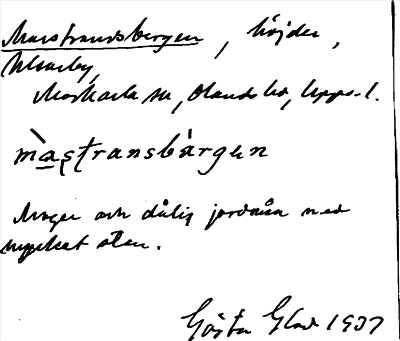 Marstrandsbergen, höjder,
Ulvarby,
Morkarla sn, Olands hd, Uppl.
màstransbàrgen
Mager och dålig jordmån med
mycket sten.
Gösta Glad 1937